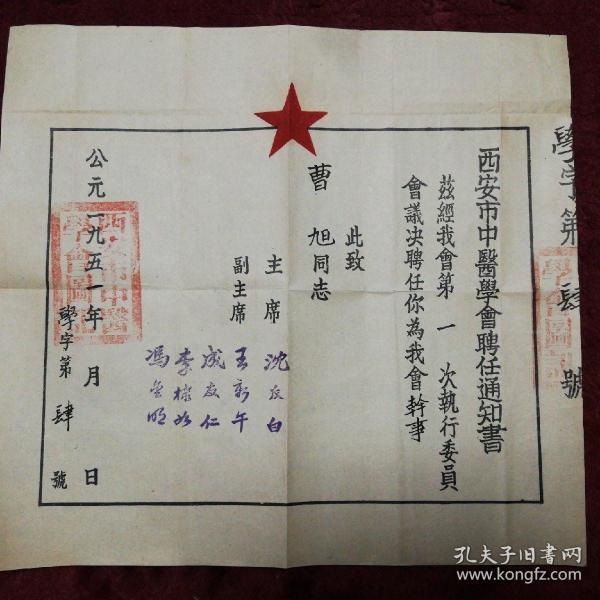 學字第肆號
西安市中醫學會聘任通知書
茲經我會第一次執行委員
會議決聘任你為我會幹事
此致
曹旭同志
主席 沈反白
副主席 王新午
成友仁
李棣如
馮全明
公元一九五一年 月 日
學字第肆號
孔夫子旧书网
www.kongfz.com